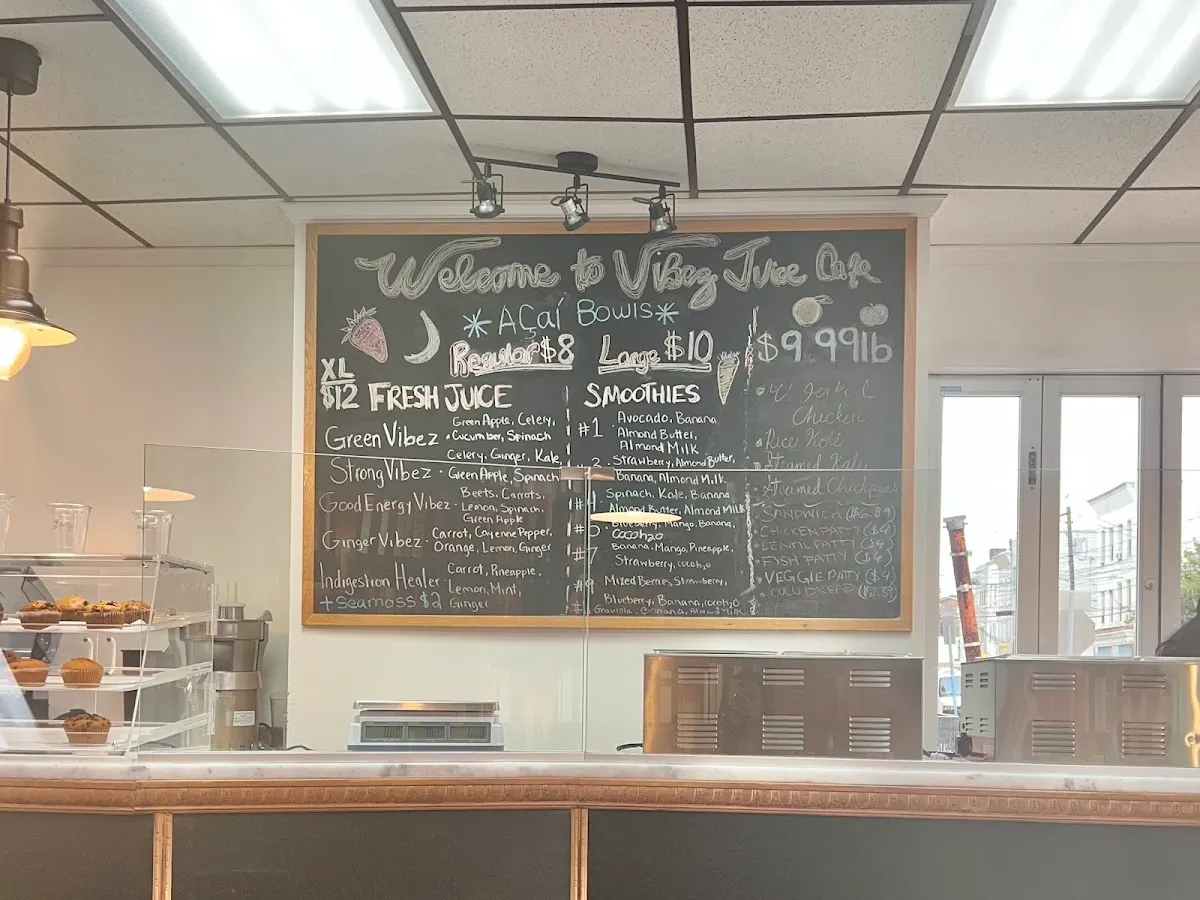 Welcome to Vibez Juice Cafe
*AÇaí Bowls*
Regular $8 Large $10
XL
$12
FRESH JUICE
Green Vibez · Green Apple, Celery,
Cucumber, Spinach
Strong Vibez · Celery, Ginger, Kale,
Green Apple, Spinach
Good Energy Vibez · Beets, Carrots,
Lemon, Spinach,
Green Apple
Ginger Vibez · Carrot, Cayenne Pepper,
Orange, Lemon, Ginger
Indigestion Healer · Carrot, Pineapple,
Lemon, Mint,
Ginger
+ Seamoss $2
SMOOTHIES
#1 Avocado, Banana
Almond Butter,
Almond Milk
Strawberry, Almond Butter,
Banana, Almond Milk
#4 Spinach, Kale, Banana
Almond Butter, Almond Milk
Blueberry, Mango, Banana,
Cocoh2o
#7 Banana, Mango, Pineapple,
Strawberry, cocoh2o
Mixed Berries, Strawberry,
Blueberry, Banana, cocoh2o
Graviola, Banana, Almd Milk
$9.99lb
Chicken
Rice
Steamed Kale
Steamed
SANDWICH
CHICKEN PATTY ($4)
LENTIL PATTY ($4)
FISH PATTY ($4)
VEGGIE PATTY ($4)
BREAD